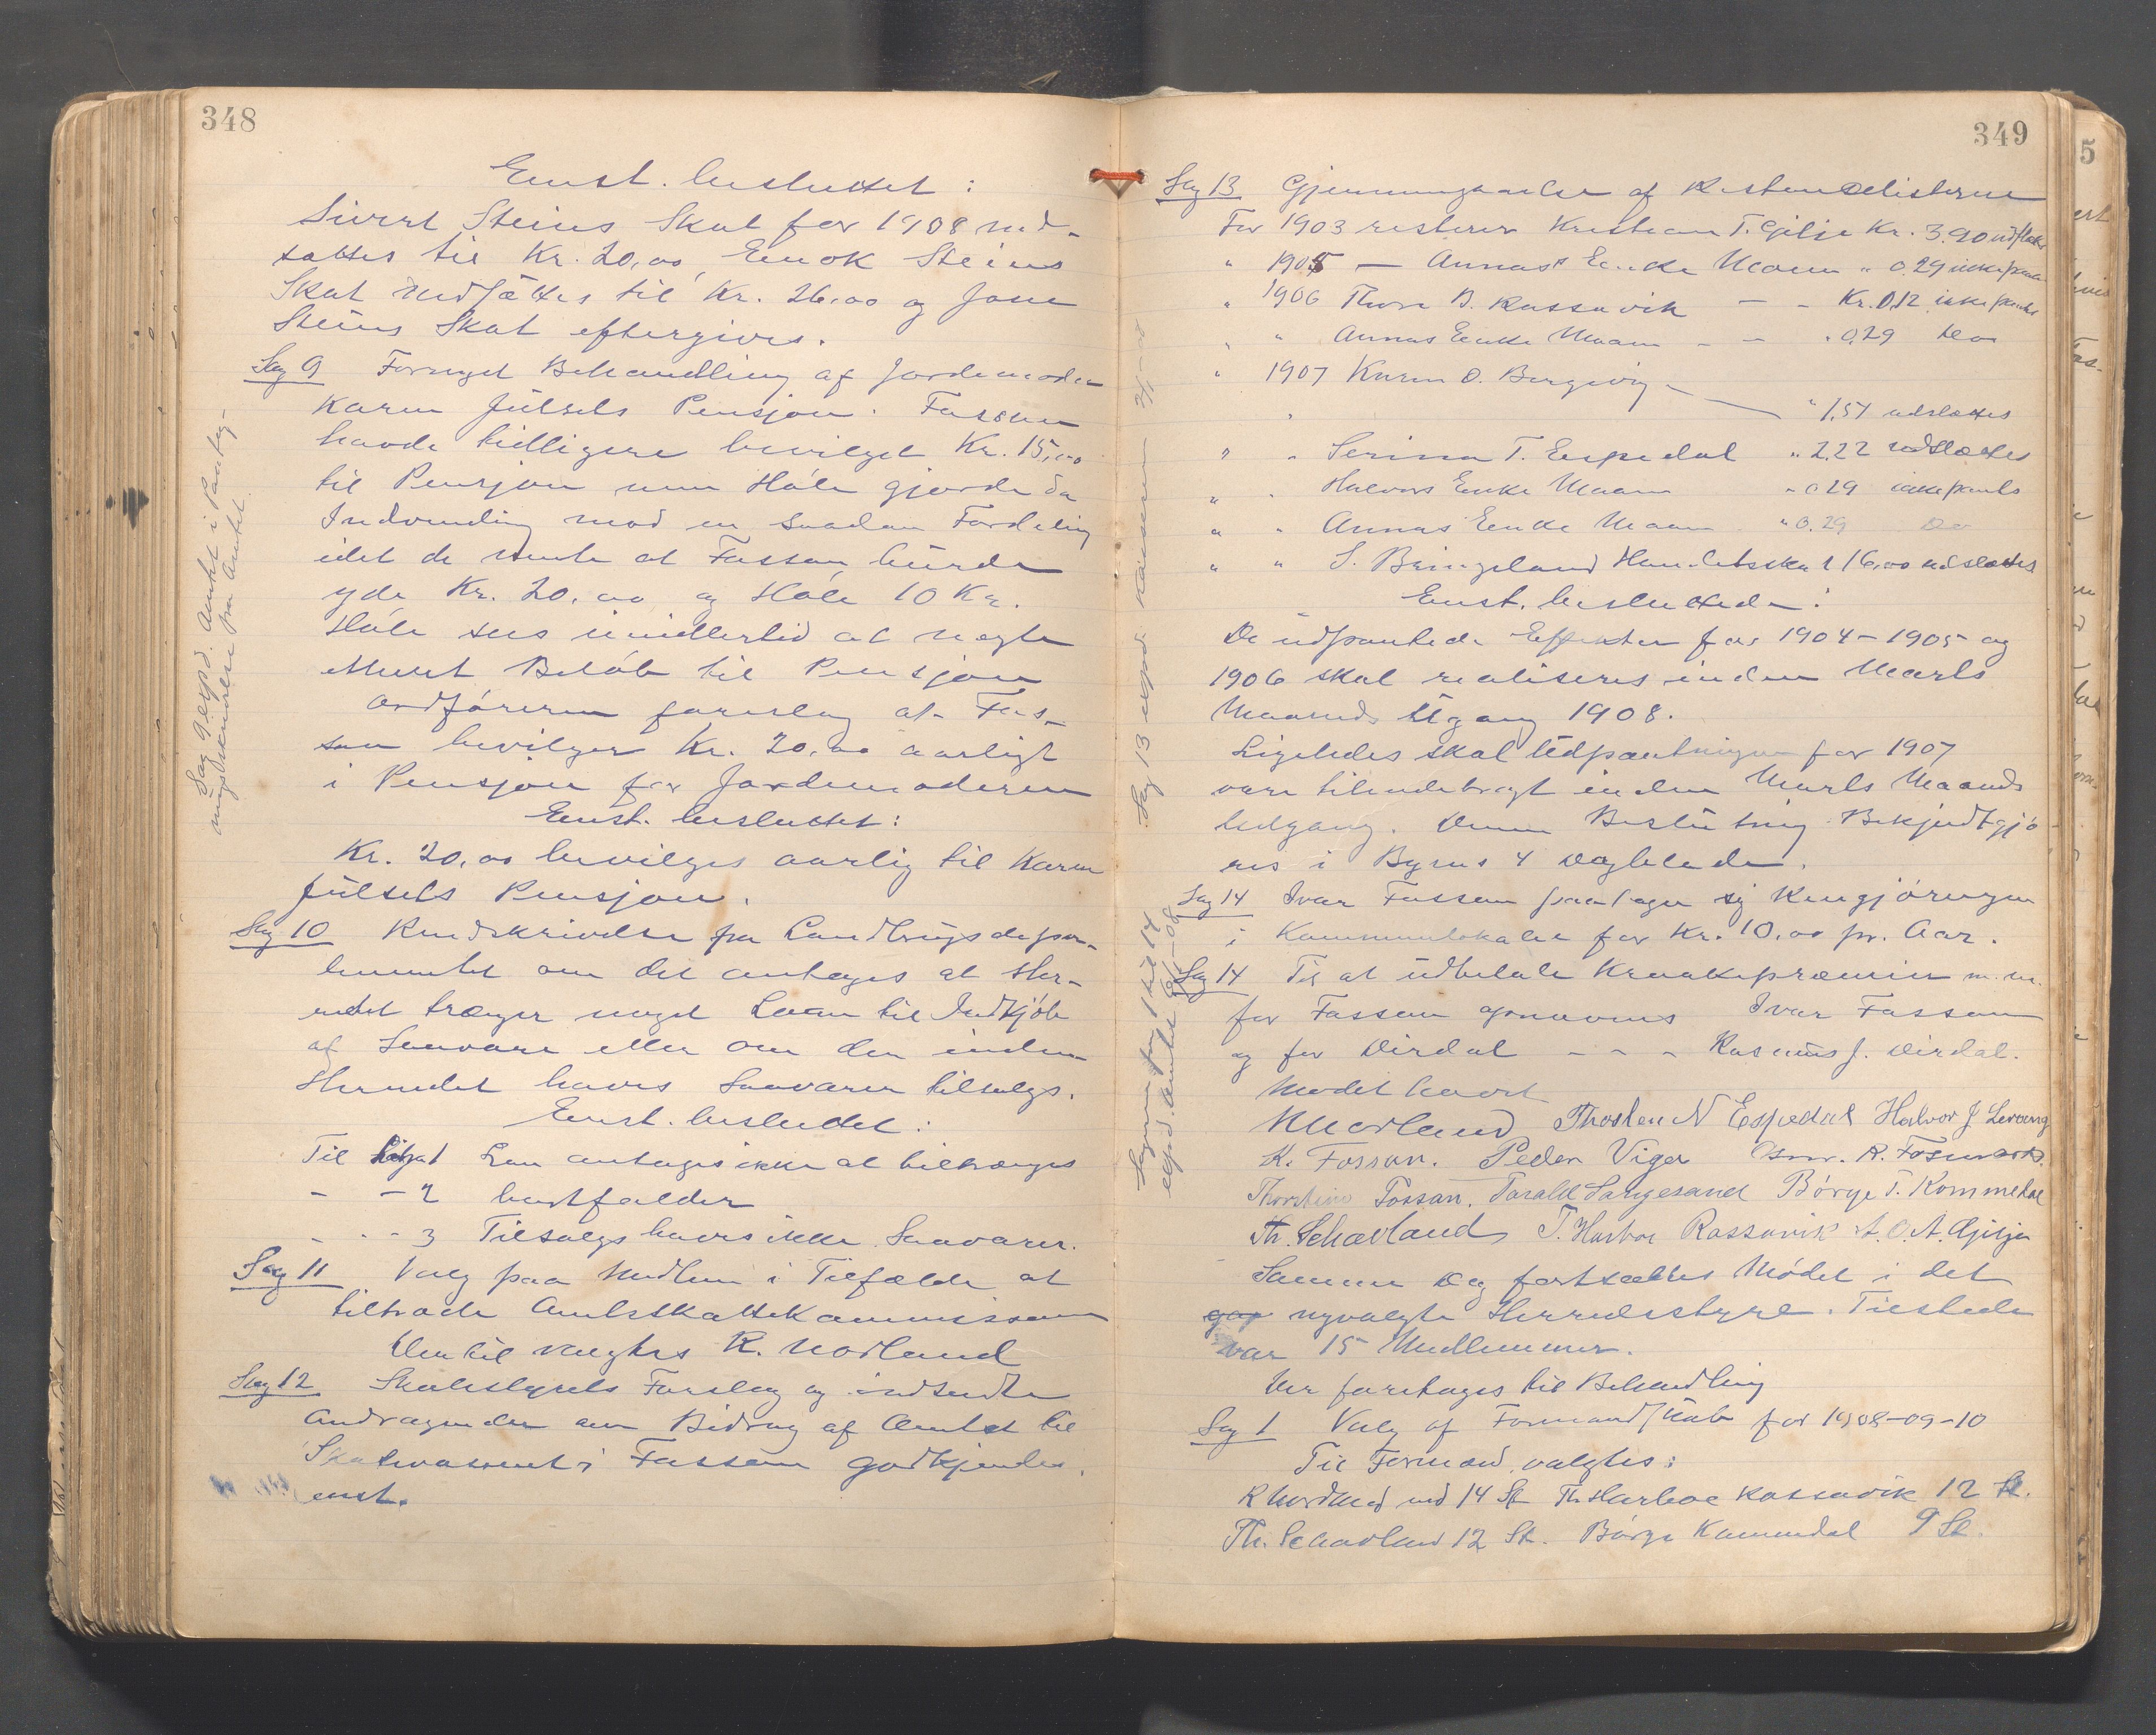 348
Enst. besluttet:
Sivert Steins Skat for 1908 ned-
sattes til Kr. 20,00, Enok Steins
Skat nedsættes til Kr. 26.00 og Jone
Steins Skat eftergives.
Sag 9 Fornyet Behandling af Jordemoder
Karen Jülsets Pensjon. Fossan
havde tidligere bevilget Kr. 15,00
til Pensjon men Höle gjorde da
Indvending mod en saadan Fordeling
idet de mente at Fossan bürde
yde Kr. 20.00 og Höle 10 Kr.
Höle sees imidlertid at negte
ethvert Belöb til Pensjon
Ordföreren foreslog at Fos-
san bevilger Kr. 20.00 aarligt
i Pensjon for Jordemoderen
Enst. besluttet:
Kr. 20.00 bevilges aarlig til Karen
Jülsets Pensjon.
Sag 10 Rundskrivelse fra Landbrugsdepar-
tementet om det antages at Her-
redet trænger noget Laan til Indkjöb
af Saavare eller om der inden
Herredet haves Saavarer tilsalgs.
Enst. besluttet:
Til 1 Laan antages ikke at tiltrænges
- - 2 bortfalder
- - 3 Tilsalgs haves ikke Saavarer.
Sag 11 Valg paa Medlem i Tilfælde at
tiltræde Amtsskattekommissionen
Dertil valgtes K. Norland
Sag 12 Skolestyrets Forslag og indsendte
Andragender om Bidrag af Amtet til
Skolevæsenet i Fossan godkjendes
enst.
Sag 9 exp. Amtet i Panteg-
fra Amtet
349
Sag 13 Gjennemgaaelse af Restancelisterne
For 1903 resterer Kristian T. Gilje Kr. 3.90 udslettes
" 1905 — Annas Enke Maan " 0.29 ikke pante
" 1906 Thore B. Rossavik — - Kr. 0,12 ikke pantes
" " Annas Enke Maan - - " 0,29 Do
" 1907 Karen O. Bergevig
" — " 1.54 udslettes
" " Serina T. Espedal " 2.22 udslættes
" " Halvors Enke Maan " 0.29 ikke pantes
" " Annas Enke Maan " 0.29 Do
" " S. Bringeland Handelsskat 16,00 udslættes
Enst. besluttede:
De üdpantede Effekter for 1904-1905 og
1906 skal realiseres inden Marts
Maaneds Udgang 1908.
Ligeledes skal Udpantningen for 1907
være tilendebragt inden Marts Maaneds
Udgang. Denne Beslütning Bekjendtgjö
res i Byens 4 Dagblade.
Sag 14 Ivar Fossan paatager sig Rengjöringen
i Kommunelokalet for Kr. 10.00 pr. Aar.
Sag 14 Til at üdbetale Kraakepræmier m.m.
for Fossan opnævnes Ivar Fossan
og for Dirdal - - - Rasmus J. Dirdal.
Mødet hævet
Thosten N Espedal Halvor J Levang
K. Fossan. Peder Viger
Thorstein Fossan. Torald Sangesand Börge T. Kommedal
Th. Schavland T. Harboe Rossavik A. O. A. Gilje
Samme Dag fortsættes Mödet i det
nyvalgte Herredsstyre. Tilstede
var 15 Medlemmer.
Der foretoges til Behandling
Sag 1 Valg af Formandskab for 1908-09-10
Til Formænd valgtes:
K Nordland med 14 St. Th. Harboe Rossavik 12 St.
Th. Schavland 12 St. Börge Kommedal 9 St.
Sag 13 expd. Kasseren
expd. Amtet
5